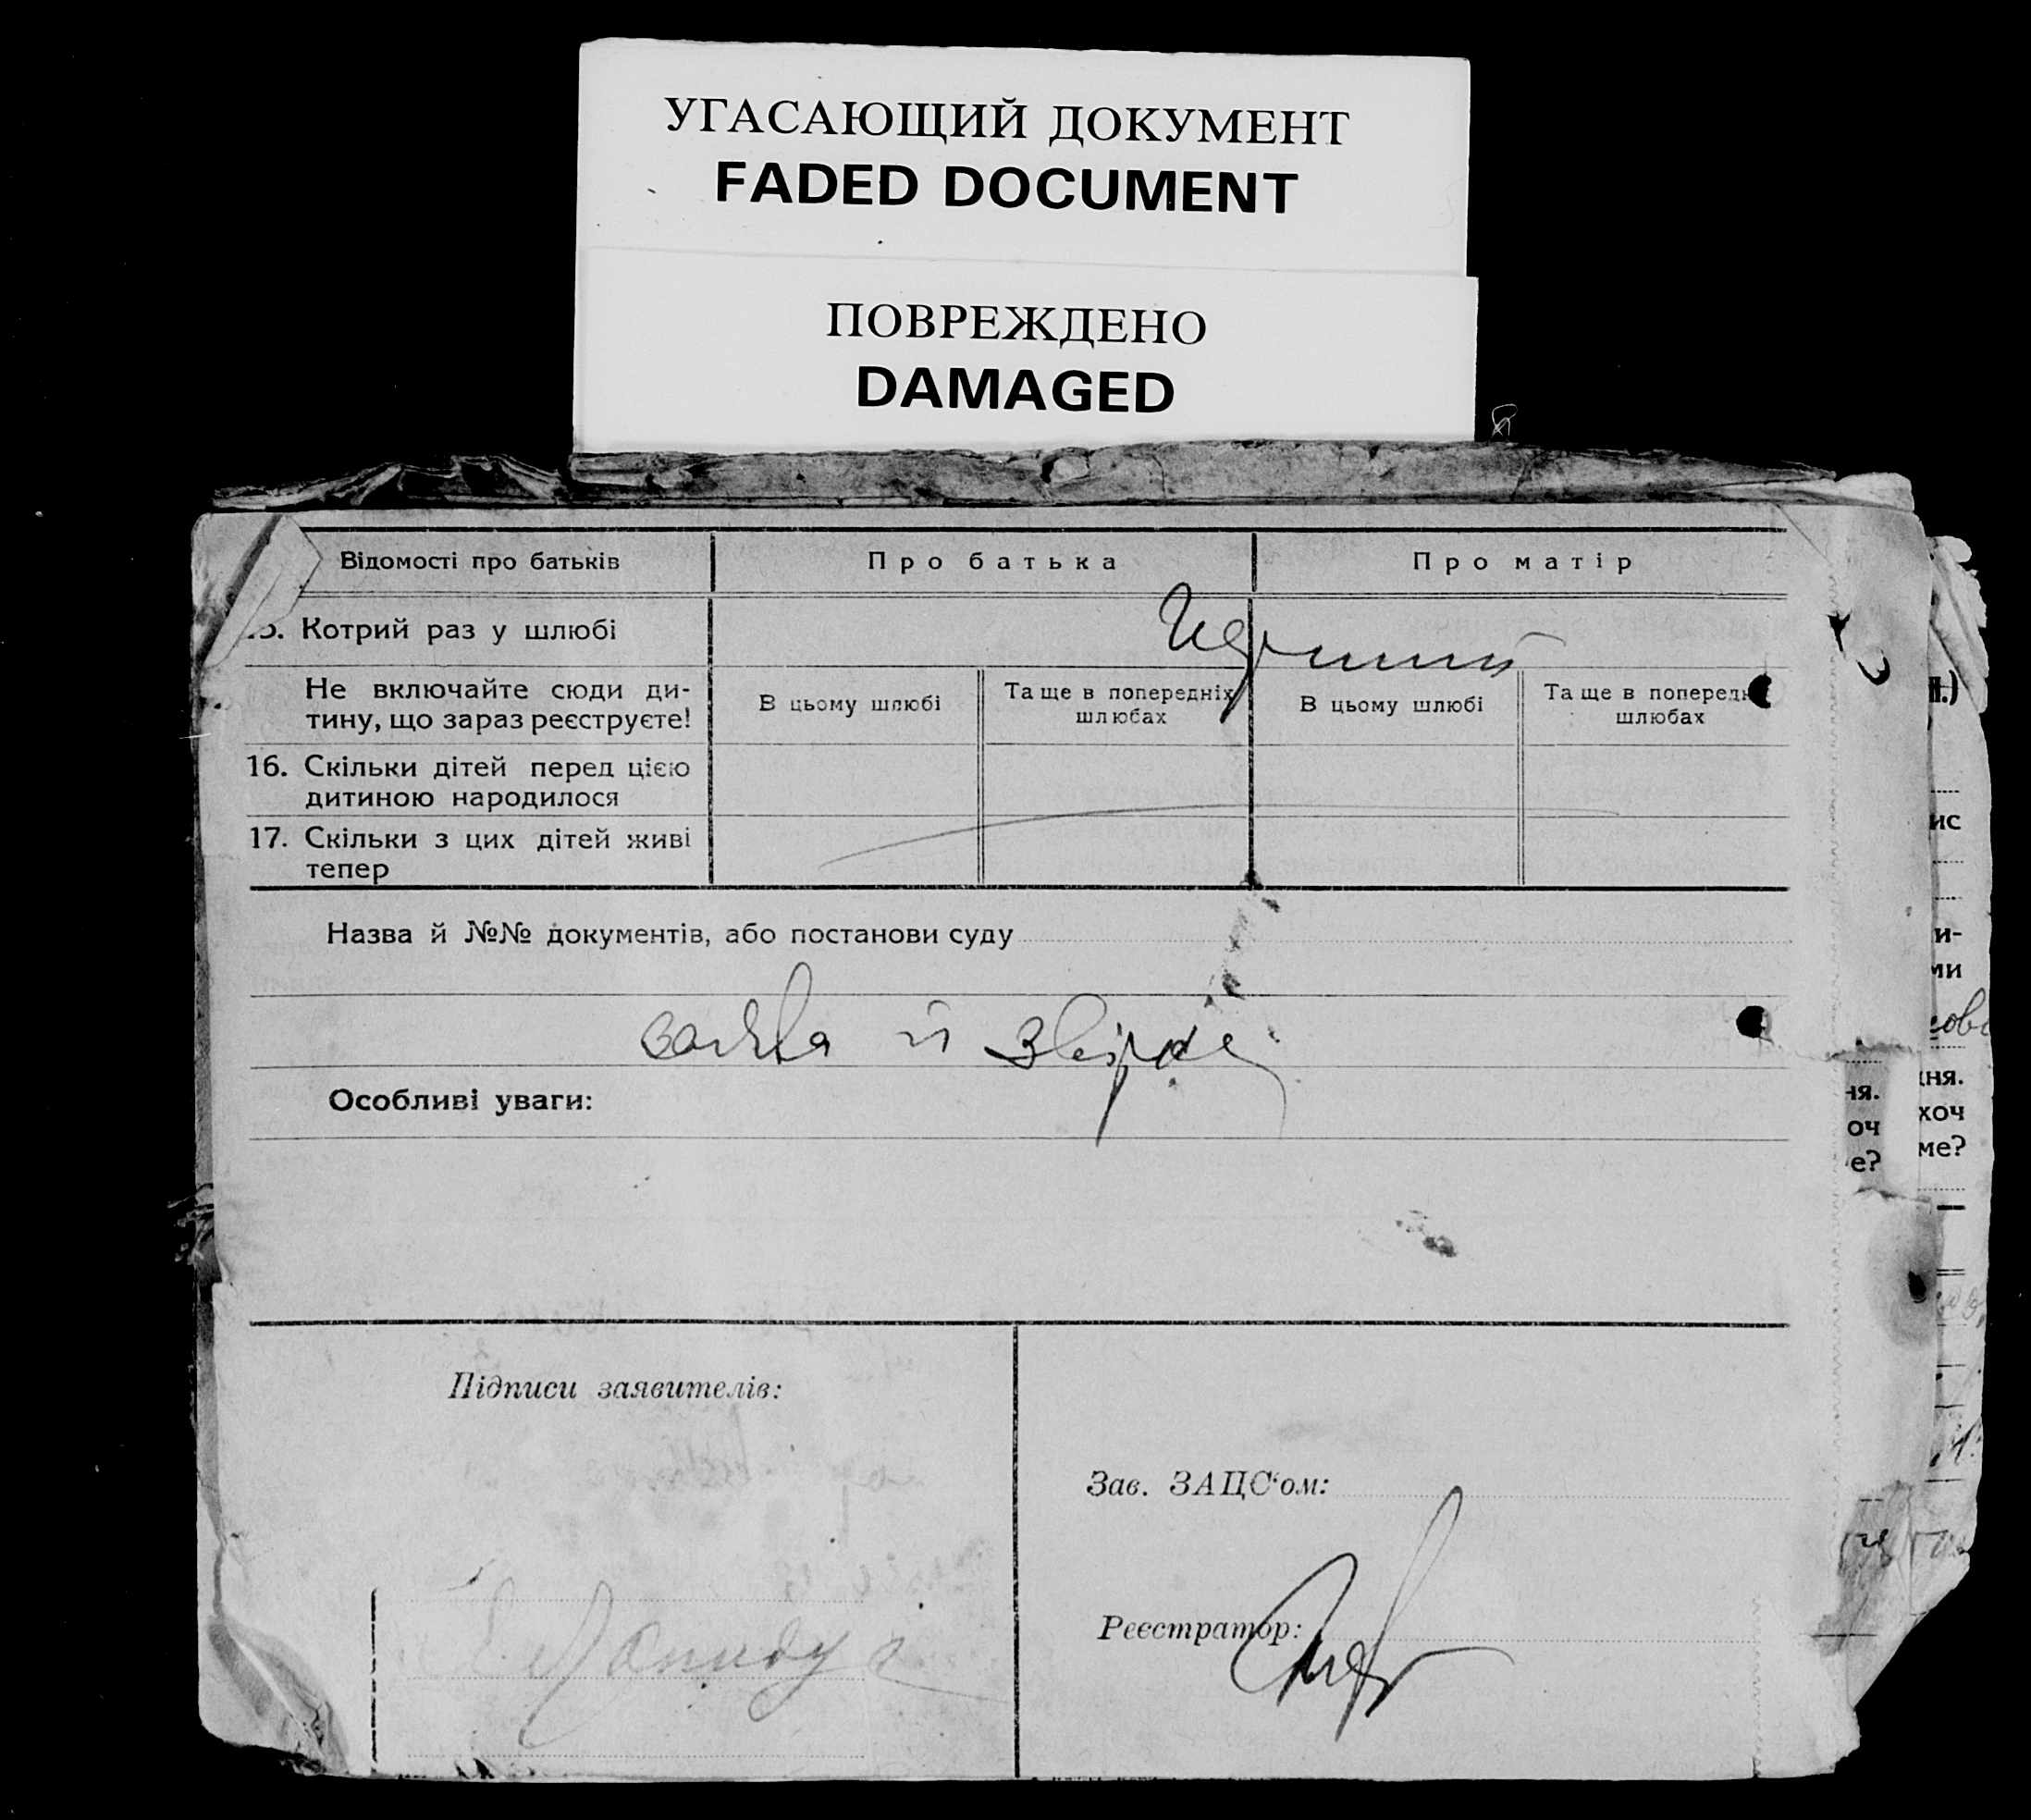 УГАСАЮЩИЙ ДОКУМЕНТ
FADED DOCUMENT
ПОВРЕЖДЕНО
DAMAGED
Відомості про батьків
Про батька
Про матір
Котрий раз у шлюбі
Не включайте сюди ди-
тину, що зараз реєструєте!
В цьому шлюбі
Та ще в попередніх
шлюбах
В цьому шлюбі
Та ще в
шлюбах
16. Скільки дітей перед цією
дитиною народилося
17. Скільки з цих дітей живі
тепер
Назва й №№ документів, або постанови суду
заява й
Особливі уваги:
Підписи заявителів:
Зав. ЗАЦС'ом:
Реєстратор: